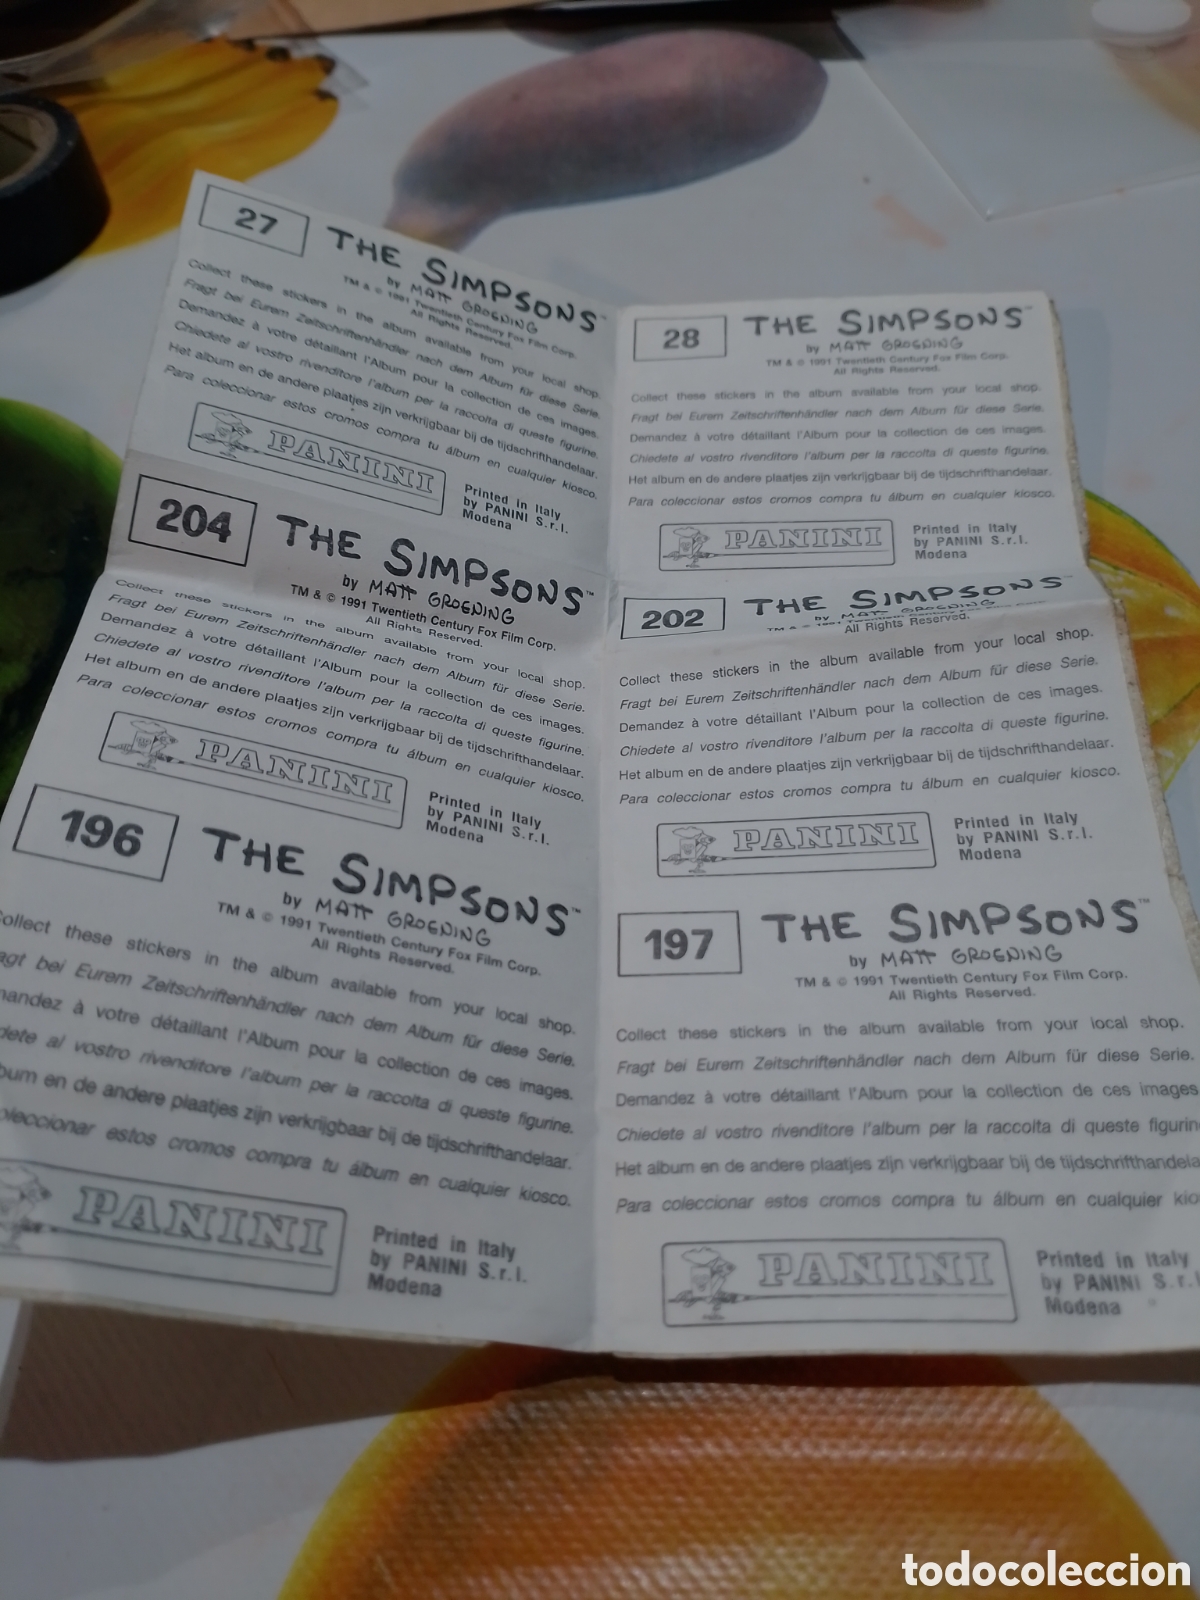 27
THE SIMPSONS™
by MATT GROENING
TM & © 1991 Twentieth Century Fox Film Corp.
All Rights Reserved.
Collect these stickers in the album available from your local shop.
Fragt bei Eurem Zeitschriftenhändler nach dem Album für diese Serie.
Demandez à votre détaillant l'Album pour la collection de ces images.
Chiedete al vostro rivenditore l'album per la raccolta di queste figurine.
Het album en de andere plaatjes zijn verkrijgbaar bij de tijdschrifthandelaar.
Para coleccionar estos cromos compra tu álbum en cualquier kiosco.
PANINI
Printed in Italy
by PANINI S.r.l.
Modena
28
THE SIMPSONS™
by MATT GROENING
TM & © 1991 Twentieth Century Fox Film Corp.
All Rights Reserved.
Collect these stickers in the album available from your local shop.
Fragt bei Eurem Zeitschriftenhändler nach dem Album für diese Serie.
Demandez à votre détaillant l'Album pour la collection de ces images.
Chiedete al vostro rivenditore l'album per la raccolta di queste figurine.
Het album en de andere plaatjes zijn verkrijgbaar bij de tijdschrifthandelaar.
Para coleccionar estos cromos compra tu álbum en cualquier kiosco.
PANINI
Printed in Italy
by PANINI S.r.l.
Modena
204
THE SIMPSONS™
by MATT GROENING
TM & © 1991 Twentieth Century Fox Film Corp.
All Rights Reserved.
Collect these stickers in the album available from your local shop.
Fragt bei Eurem Zeitschriftenhändler nach dem Album für diese Serie.
Demandez à votre détaillant l'Album pour la collection de ces images.
Chiedete al vostro rivenditore l'album per la raccolta di queste figurine.
Het album en de andere plaatjes zijn verkrijgbaar bij de tijdschrifthandelaar.
Para coleccionar estos cromos compra tu álbum en cualquier kiosco.
PANINI
Printed in Italy
by PANINI S.r.l.
Modena
202
THE SIMPSONS™
by MATT GROENING
All Rights Reserved.
Collect these stickers in the album available from your local shop.
Fragt bei Eurem Zeitschriftenhändler nach dem Album für diese Serie.
Demandez à votre détaillant l'Album pour la collection de ces images.
Chiedete al vostro rivenditore l'album per la raccolta di queste figurine.
Het album en de andere plaatjes zijn verkrijgbaar bij de tijdschrifthandelaar.
Para coleccionar estos cromos compra tu álbum en cualquier kiosco.
PANINI
Printed in Italy
by PANINI S.r.l.
Modena
196
THE SIMPSONS™
by MATT GROENING
TM & © 1991 Twentieth Century Fox Film Corp.
All Rights Reserved.
ollect these stickers in the album available from your local shop.
agt bei Eurem Zeitschriftenhändler nach dem Album für diese Serie.
mandez à votre détaillant l'Album pour la collection de ces images.
dete al vostro rivenditore l'album per la raccolta di queste figurine.
bum en de andere plaatjes zijn verkrijgbaar bij de tijdschrifthandelaar.
oleccionar estos cromos compra tu álbum en cualquier kiosco.
PANINI
Printed in Italy
by PANINI S.r.l.
Modena
197
THE SIMPSONS™
by MATT GROENING
TM & © 1991 Twentieth Century Fox Film Corp.
All Rights Reserved.
Collect these stickers in the album available from your local shop.
Fragt bei Eurem Zeitschriftenhändler nach dem Album für diese Serie.
Demandez à votre détaillant l'Album pour la collection de ces images
Chiedete al vostro rivenditore l'album per la raccolta di queste figurin
Het album en de andere plaatjes zijn verkrijgbaar bij de tijdschrifthandela
Para coleccionar estos cromos compra tu álbum en cualquier kio
PANINI
Printed in Italy
by PANINI S.r.l
Modena
todocoleccion